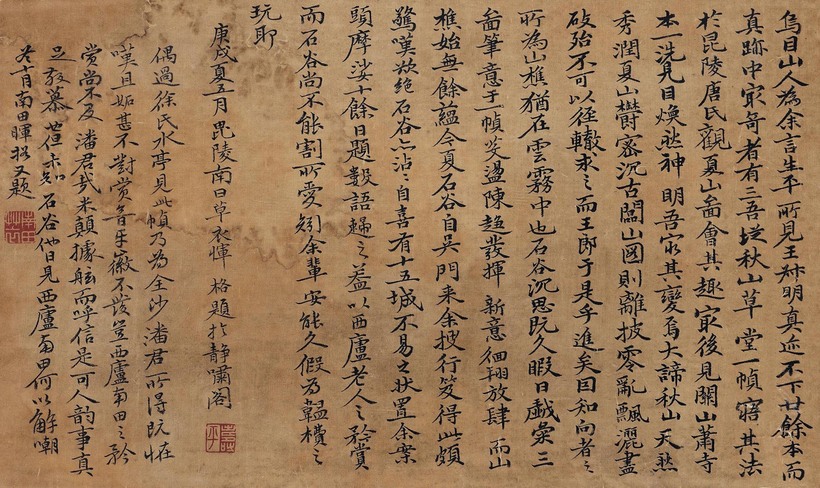 烏目山人為余言生平所見王叔明真迹不下廿餘本而
真跡中寂奇者有三吾從秋山草堂一幀寤其法
於毘陵唐氏觀夏山啚會其趣寂後見關山蕭寺
本一洗見目煥然神明吾寂其變焉大諦秋山天然
秀潤夏山欝密沉古關山圖則離披零亂飄灑盡
致殆不可以徑轍求之而王郎于是乎進矣因知向者之
所為山樵猶在雲霧中也石谷沉思既久暇日戲彙三
啚筆意于一幀芟盪陳趍發揮新意徊翔放肆而山
樵始無餘蘊今夏石谷自吳門来余搜行笈得此頗
驚嘆欲絕石谷亦沾沾自喜有十五城不易之狀置余案
頭摩挲十餘日題數語歸之蓋以西廬老人之矜賞
而石谷尚不能割所愛矧余輩安能久假為韞櫝之
玩耶
庚戌夏五月毘陵南田草衣惲格題於靜嘯閣
偶過徐氏水亭見此幀乃為金沙潘君所得既怪
嘆且妬甚不對賞音牙徽不發豈西廬南田之矜
賞尚不及潘君哉米顛據舷而呼信是可人韵事真
足效慕但未知石谷他日見西廬南田何以解嘲
冬十月南田惲格又題